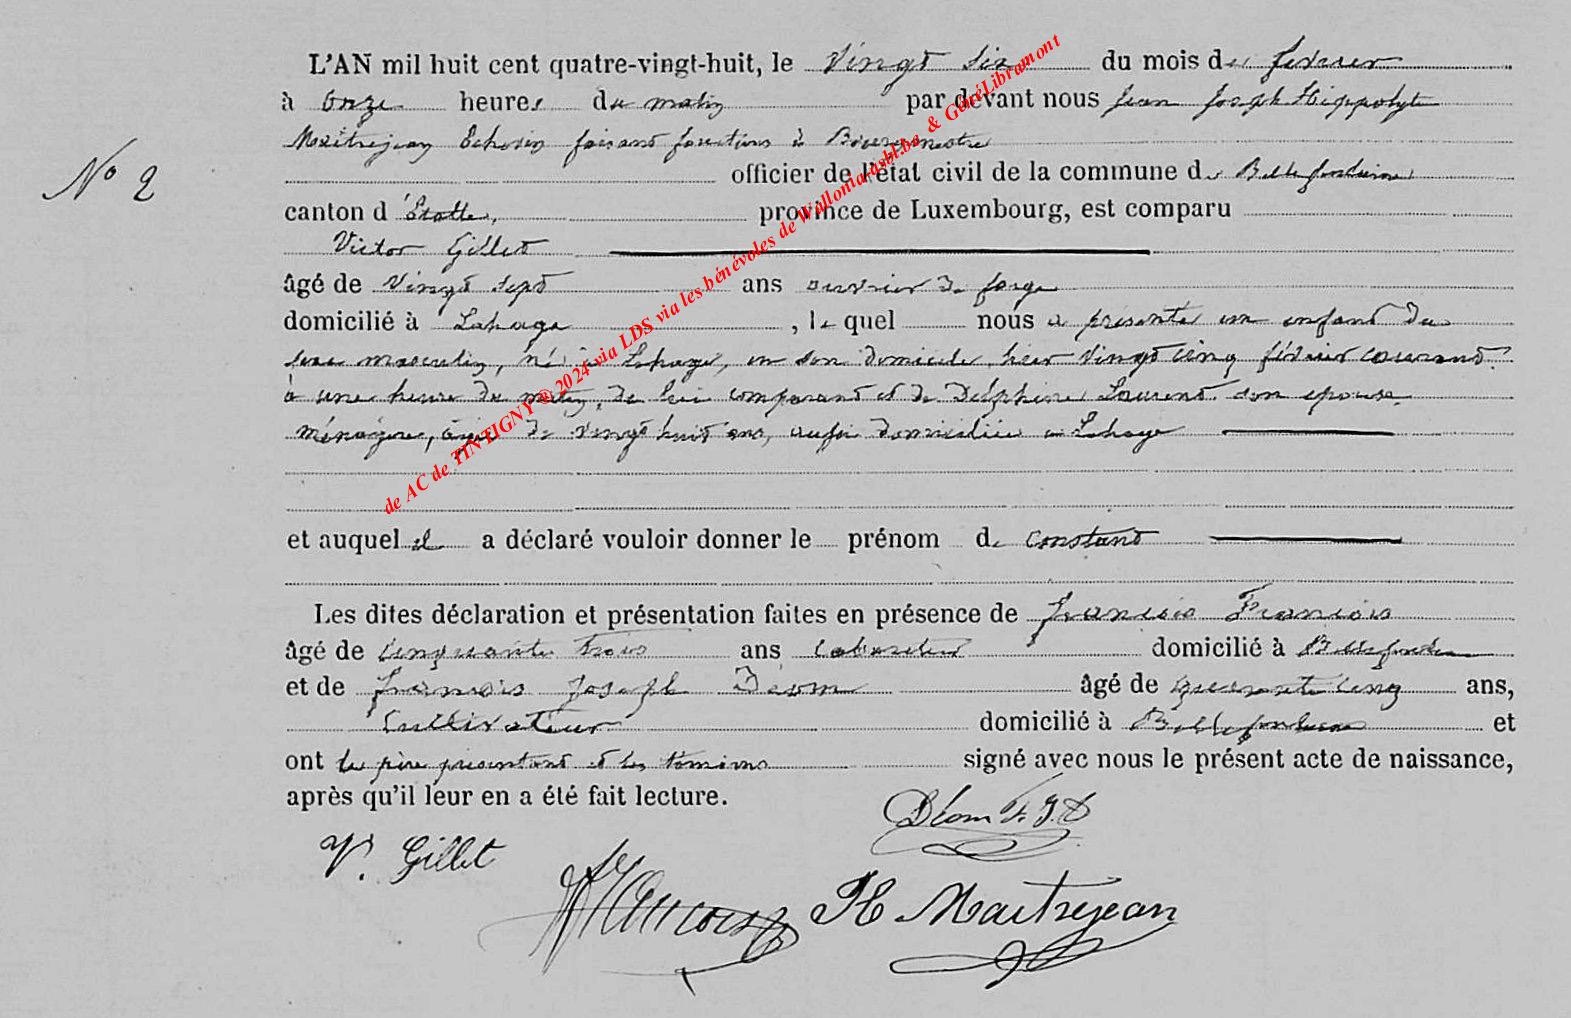 L'AN mil huit cent quatre-vingt-huit, le Vingt Six du mois de fevrier
à Onze heures du matin par devant nous Jean Joseph Hippolyte
Maitrejean Echevin faisant fonctions de Bourgmestre
N° 2
officier de l'état civil de la commune de Bellefontaine
canton d'Etalle, province de Luxembourg, est comparu
Victor Gillet
âgé de Vingt Sept ans ouvrier de forge
domicilié à Lahage, le quel nous a présenté un enfant du
sexe masculin, né à Lahage, en son domicile, hier Vingt cinq février courant
à une heure du matin, de lui comparant et de Delphine Laurent son epouse
ménagère, âgée de vingt huit ans, aussi domiciliée à Lahage
et auquel il a déclaré vouloir donner le prénom de Constant
Les dites déclaration et présentation faites en présence de François François
âgé de Cinquante trois ans Cabaretier domicilié à Bellefontaine
et de François Joseph Déom âgé de quarante cinq ans,
Cultivateur domicilié à Bellefontaine et
ont le père présentant et les témoins signé avec nous le présent acte de naissance,
après qu'il leur en a été fait lecture.
Déom F. J. D
V. Gillet
François H Maitrejean
de AC de TINTIGNY @ 2024 via LDS via les bénévoles de Wallonia-asbl.be & GénéLibramont